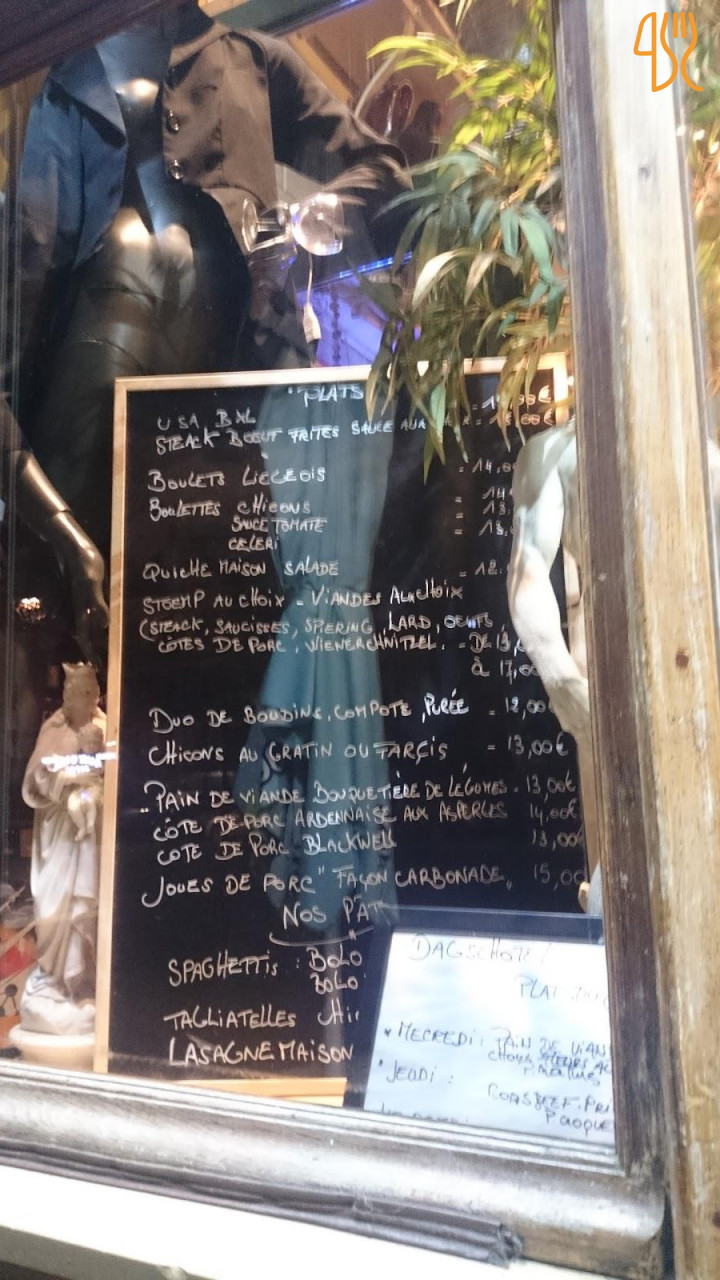 "PLATS
USA BXL
STEACK BOEUF FRITES SAUCE AUX
BOULETS LIEGEOIS = 14,0
BOULETTES CHICONS = 14
SAUCE TOMATE = 13.
CELERI = 13.
QUICHE MAISON SALADE = 12.
STOEMP AU CHOIX = VIANDES AU CHOIX
(STEACK, SAUCISSES, SPIERING, LARD, OEUFS,
CÔTES DE PORC, WIENERCHNITZEL. = DE 13,0
à 17,00
DUO DE BOUDINS, COMPOTE, PURÉE = 12,00
CHICONS AU GRATIN OU FARÇIS = 13,00€
PAIN DE VIANDE BOUQUETIÈRE DE LÉGUMES - 13,00€
CÔTE DE PORC ARDENNAISE AUX ASPERGES 14,00€
COTE DE PORC BLACKWELL 13,00€
JOUES DE PORC "FAÇON CARBONADE" 15,00
NOS PÂT
SPAGHETTIS : BOLO
BOLO
TAGLIATELLES CHI
LASAGNE MAISON
DAGSCHOTEL
PLAT DU
* MECREDI : PAIN DE VIAN
CHOUX FLEURS AU
* JEUDI : ROASBEEF. PRI